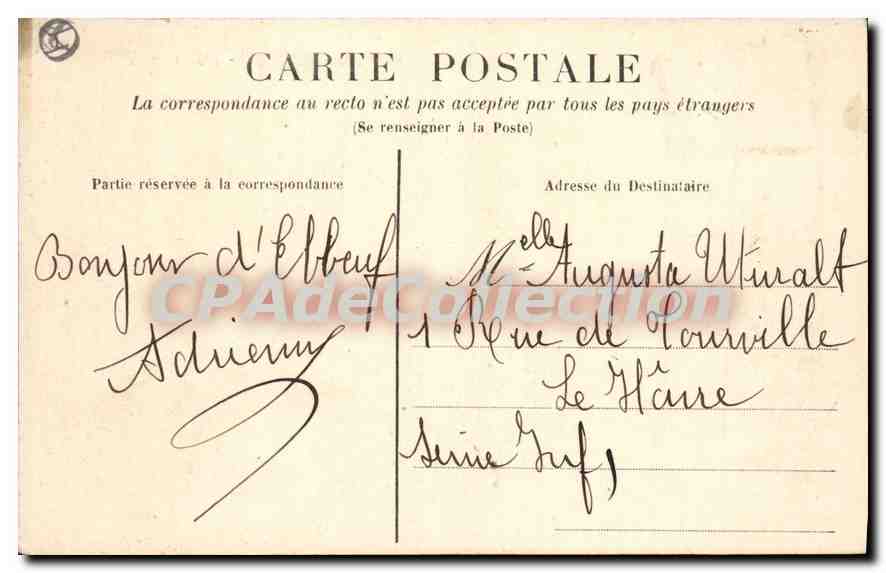 CARTE POSTALE
La correspondance au recto n'est pas acceptée par tous les pays étrangers
(Se renseigner à la Poste)
Partie réservée à la correspondance
Adresse du Destinataire
Bonjour d'Elbeuf
Adrienne
Melle Augusta
1 Rue de Tourville
Le Hâvre
Seine Inf,
CPAdeCollection